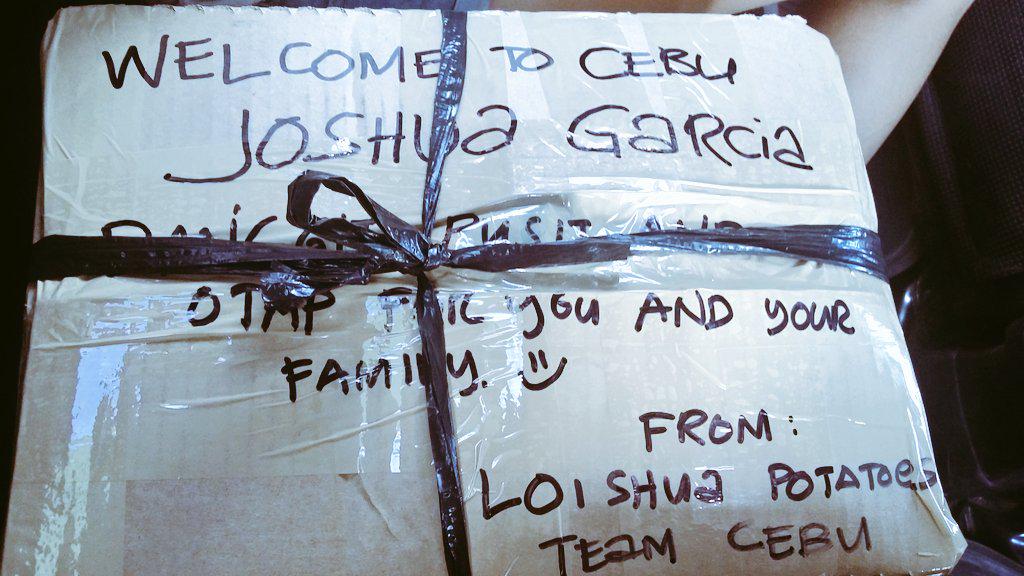 WELCOME TO CEBU
JOSHUa GaRcia
PUSIT AND
FOR YOU AND YOUR
FAMILY. :)
FROM:
LOISHUa POTATOeS
TEaM CEBU